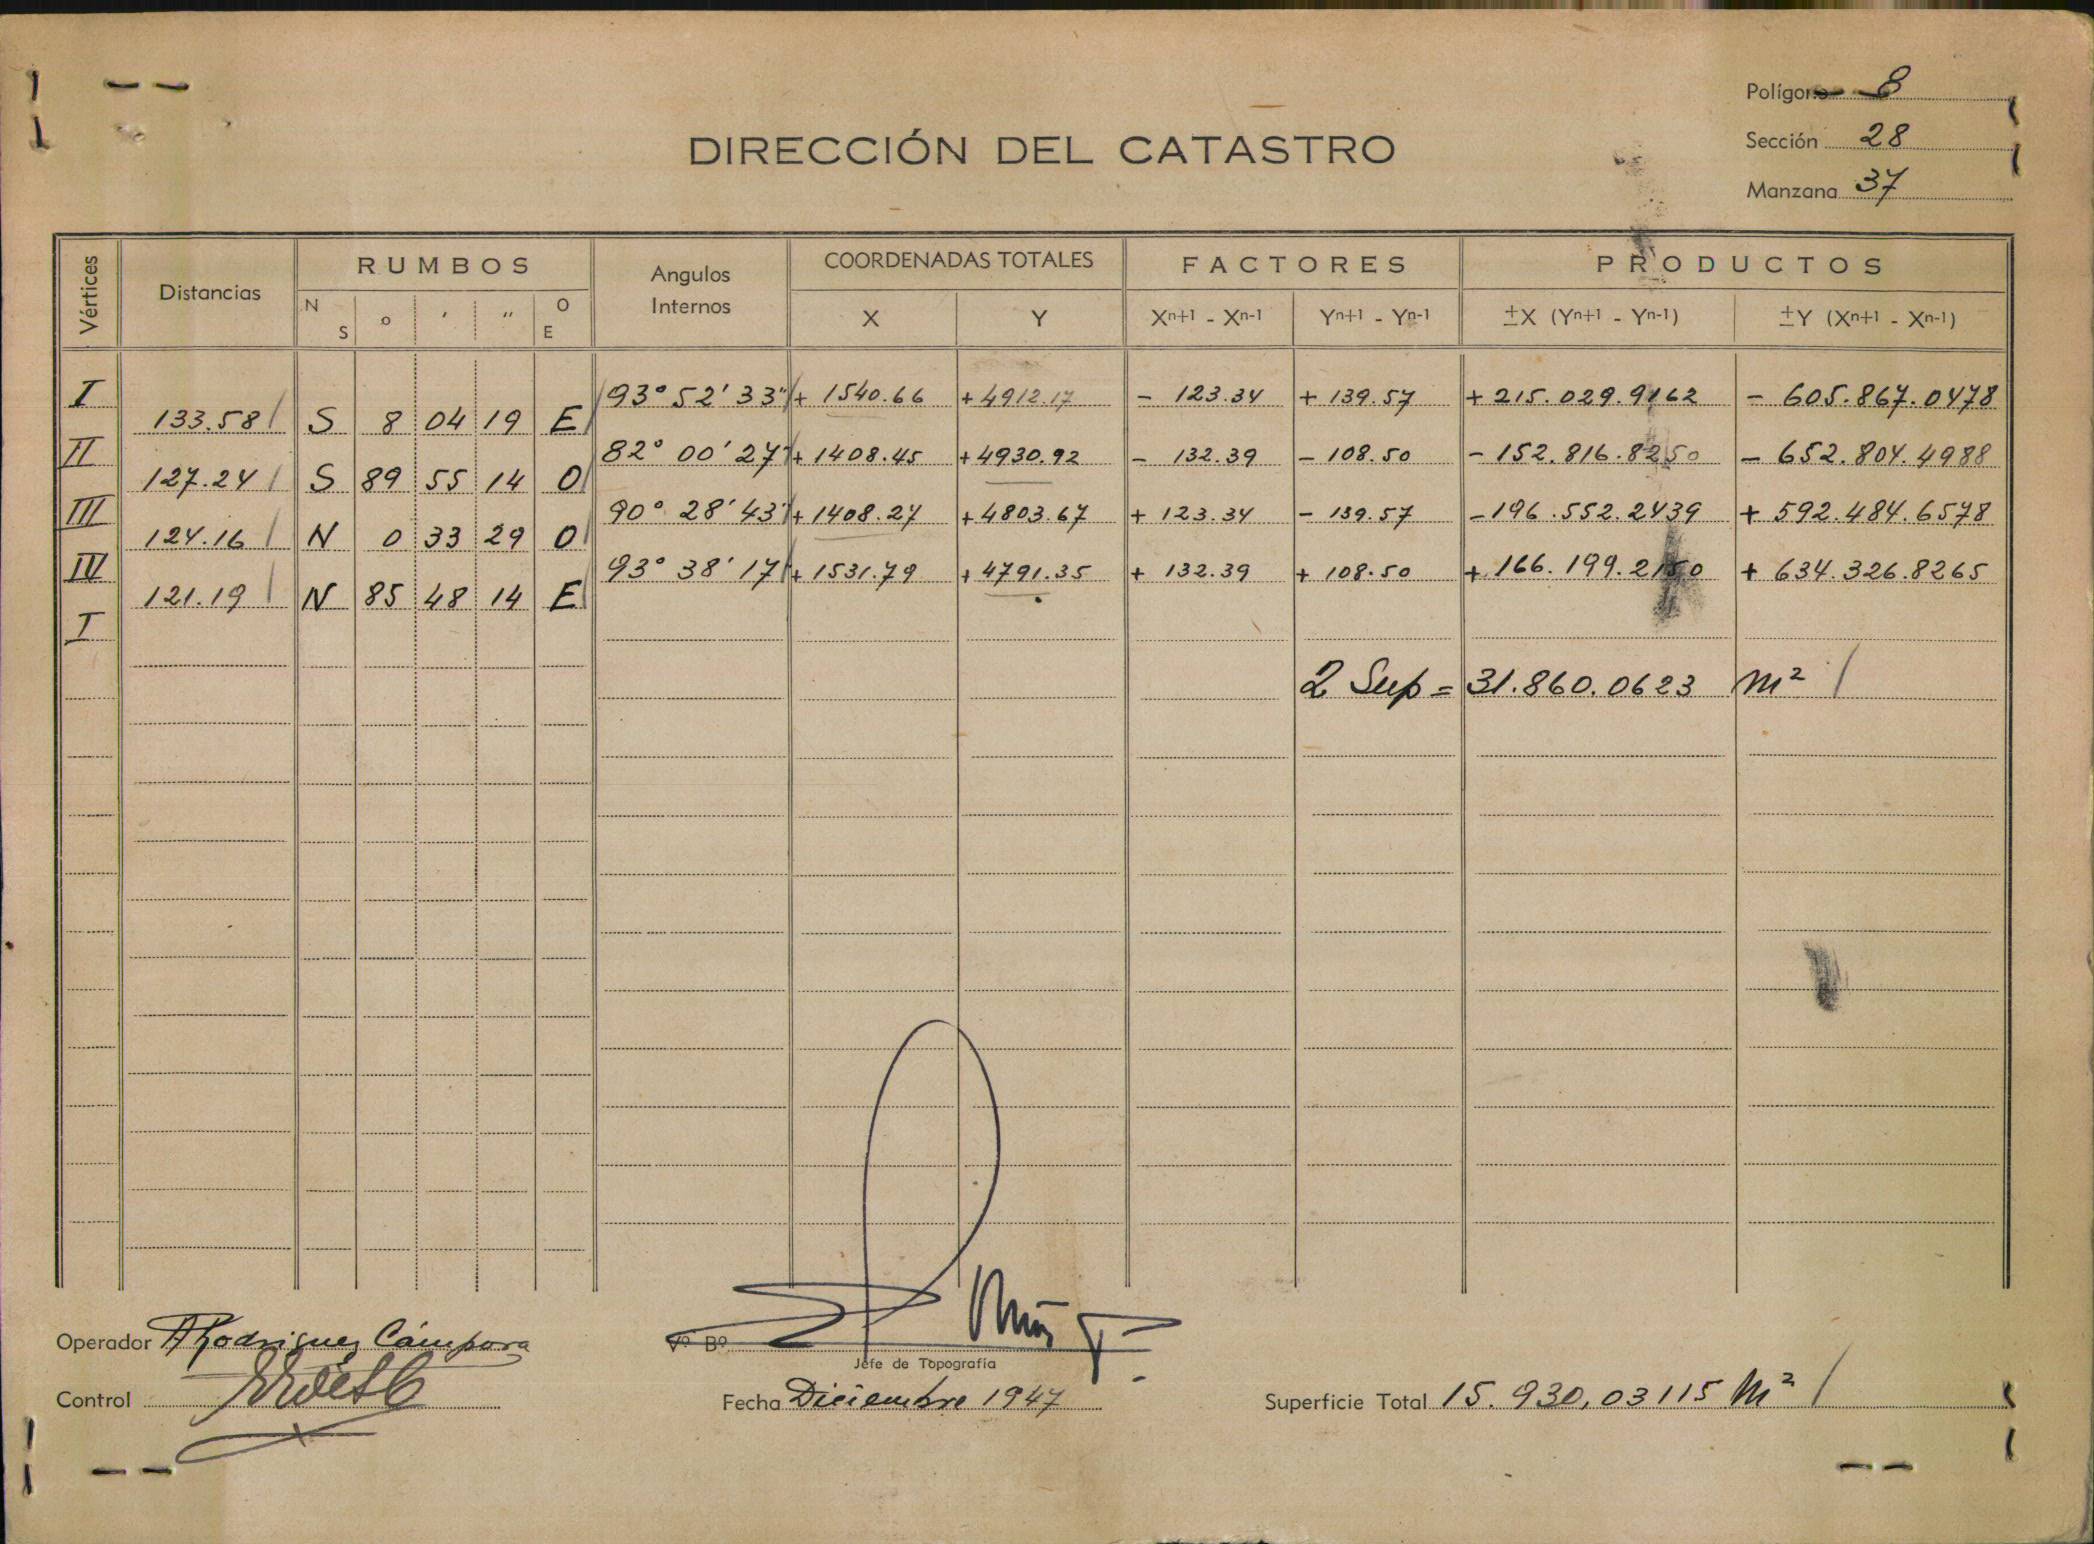 Polígono 8
DIRECCIÓN DEL CATASTRO
Sección 28
Manzana 37
Vértices Distancias RUMBOS Angulos Internos COORDENADAS TOTALES FACTORES PRODUCTOS
N S o ′ ″ O E X Y Xn+1 - Xn-1 Yn+1 - Yn-1 ±X (Yn+1 - Yn-1) ±Y (Xn+1 - Xn-1)
I 93° 52' 33" + 1540.66 + 4912.17 - 123.34 + 139.57 + 215.029.9162 - 605.867.0478
133.58 S 8 04 19 E
II 82° 00' 27" + 1408.45 + 4930.92 - 132.39 - 108.50 - 152.816.8250 - 652.804.4988
127.24 S 89 55 14 O
III 90° 28' 43" + 1408.27 + 4803.67 + 123.34 - 139.57 - 196.552.2439 + 592.484.6578
124.16 N 0 33 29 O
IV 93° 38' 17" + 1531.79 + 4791.35 + 132.39 + 108.50 + 166.199.2150 + 634.326.8265
121.19 N 85 48 14 E
I
2 Sup = 31.860.0623 m²
Operador A Rodriguez Cámpora
Vº Bº
Jefe de Topografía
Control
Fecha Diciembre 1947
Superficie Total 15.930,03115 m²